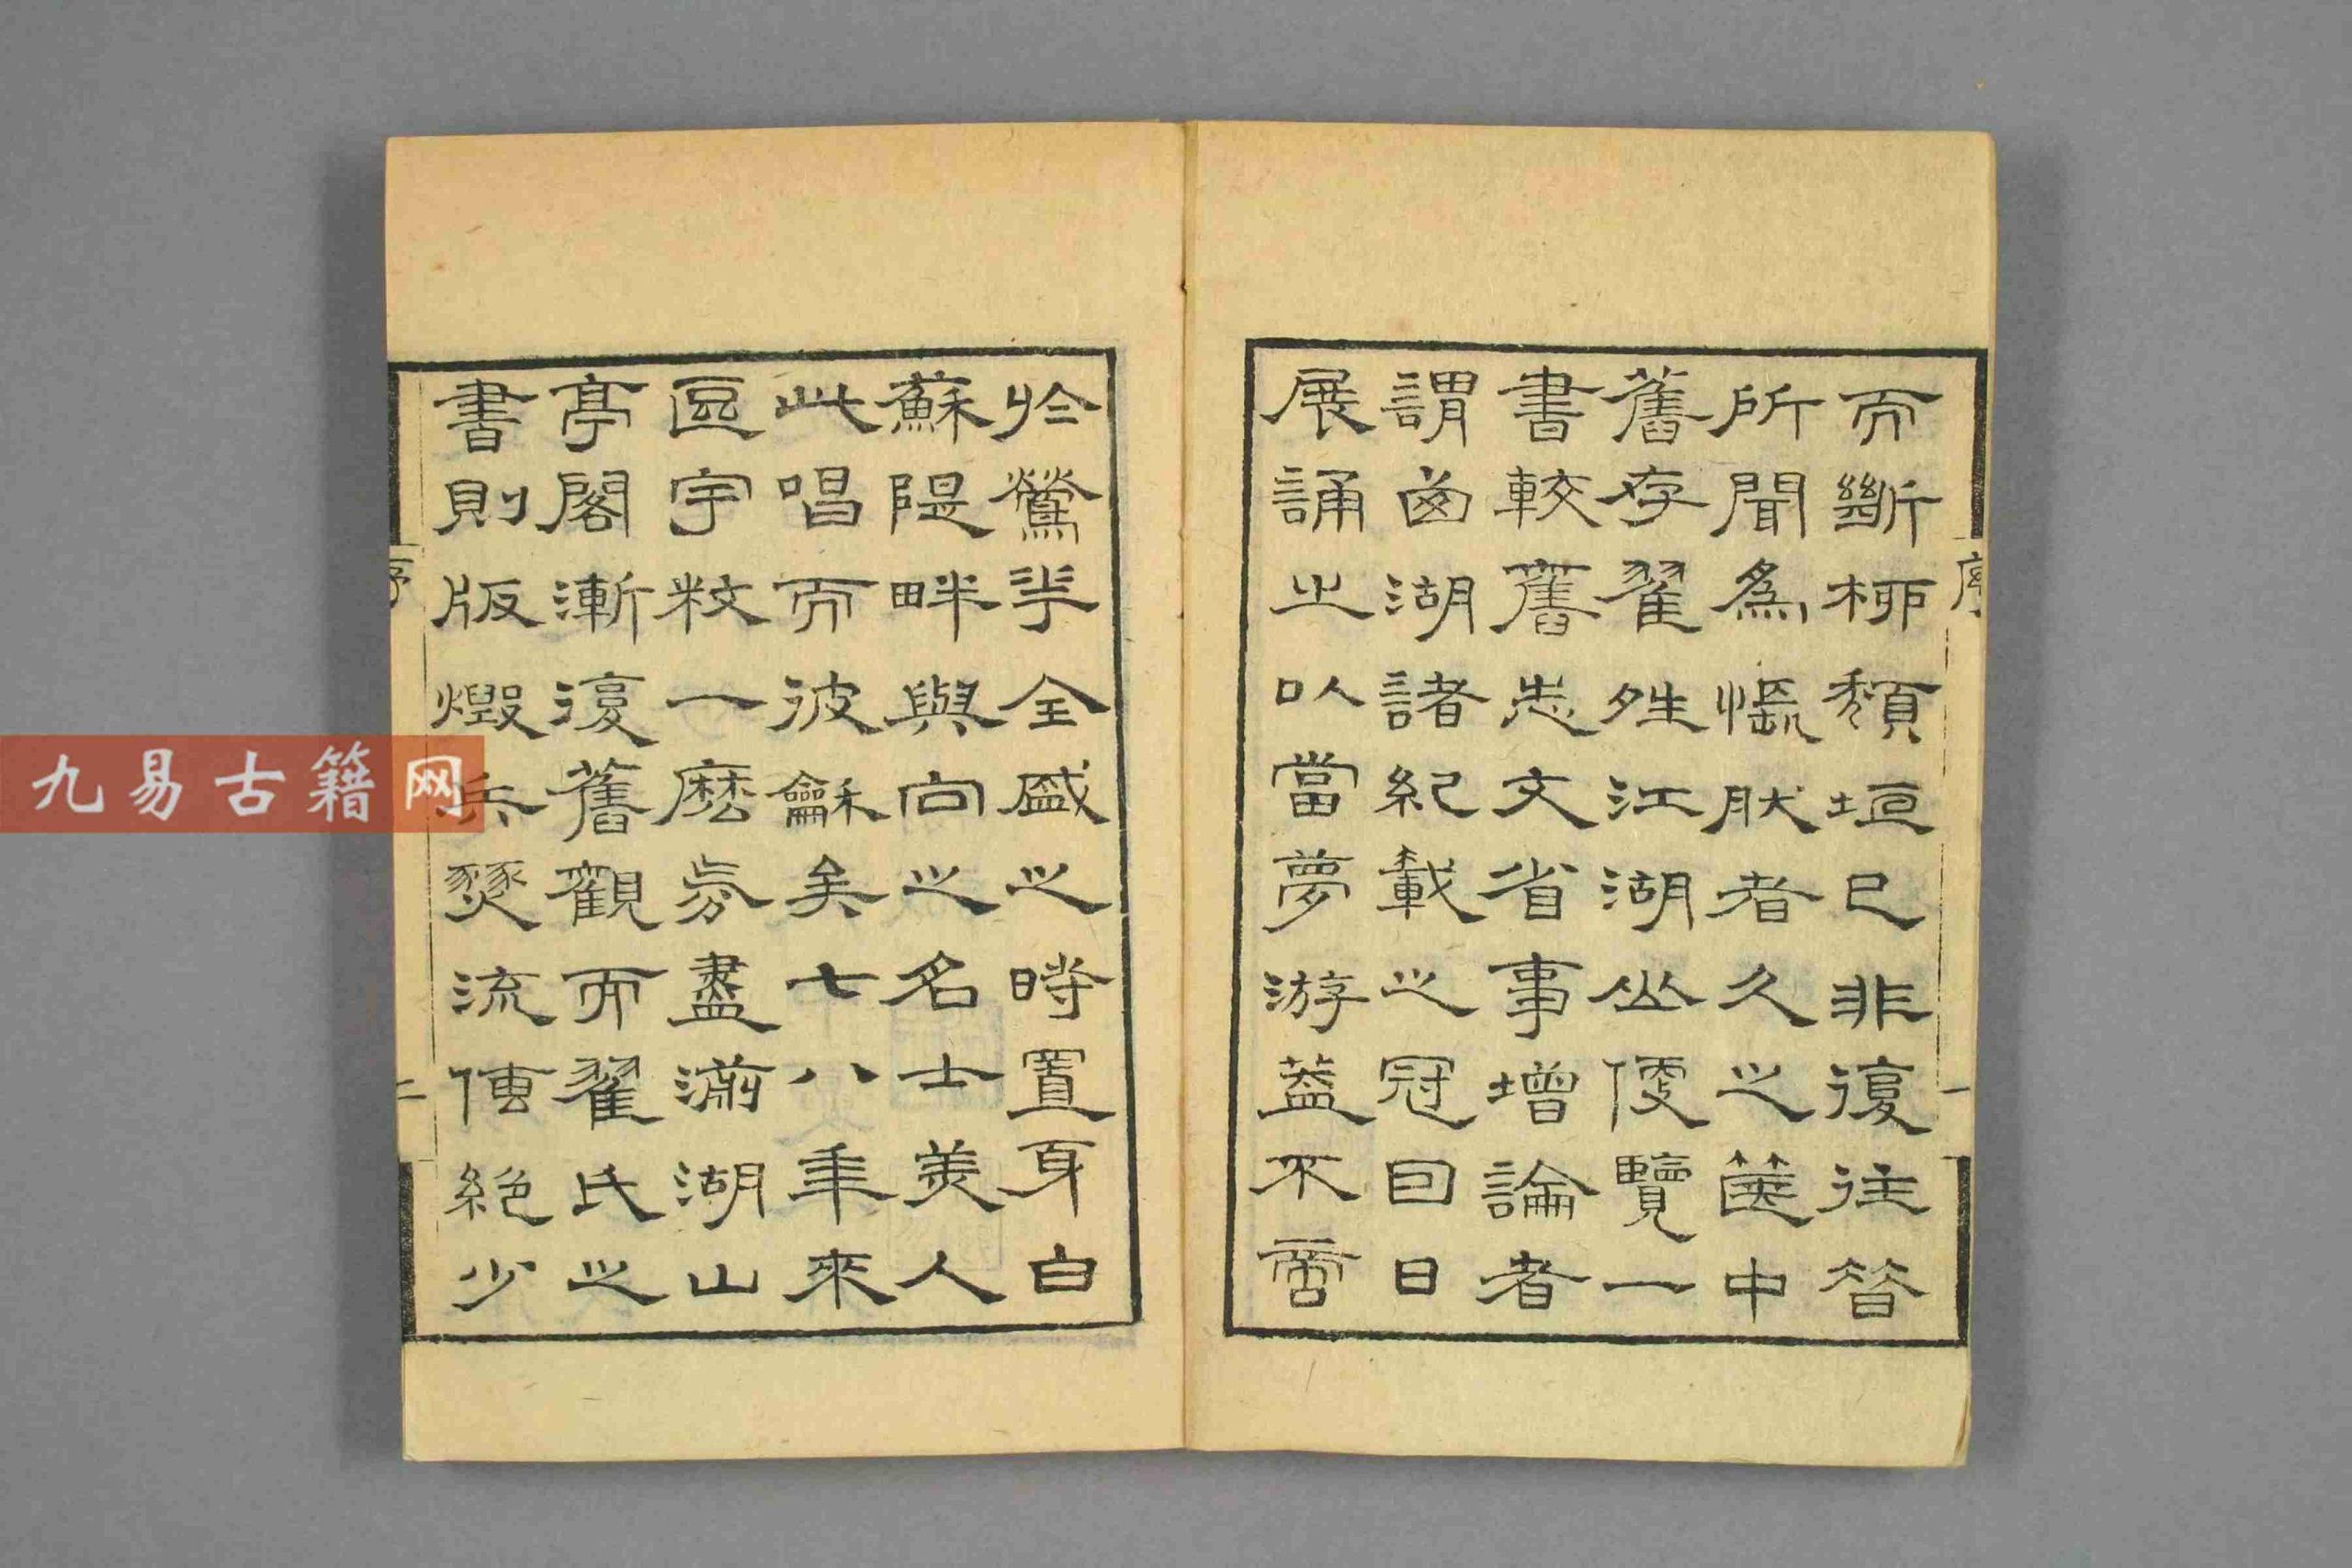 而斷柳頽垣已非復往昔
所聞為悵肰者久之篋中
舊存翟姓江湖山便覽一
書較舊志文省事增論者
謂西湖諸紀載之冠囙日
展誦之以當夢游蓋不啻
於鶯花全盛之時置身白
蘇隄畔與向之名士美人
此唱而彼龢矣七八年來
區宇敉一麽氛盡滌湖山
亭閣漸復舊觀而翟氏之
書則版燬兵燹流傳絕少
序
一
序
二
九易古籍网